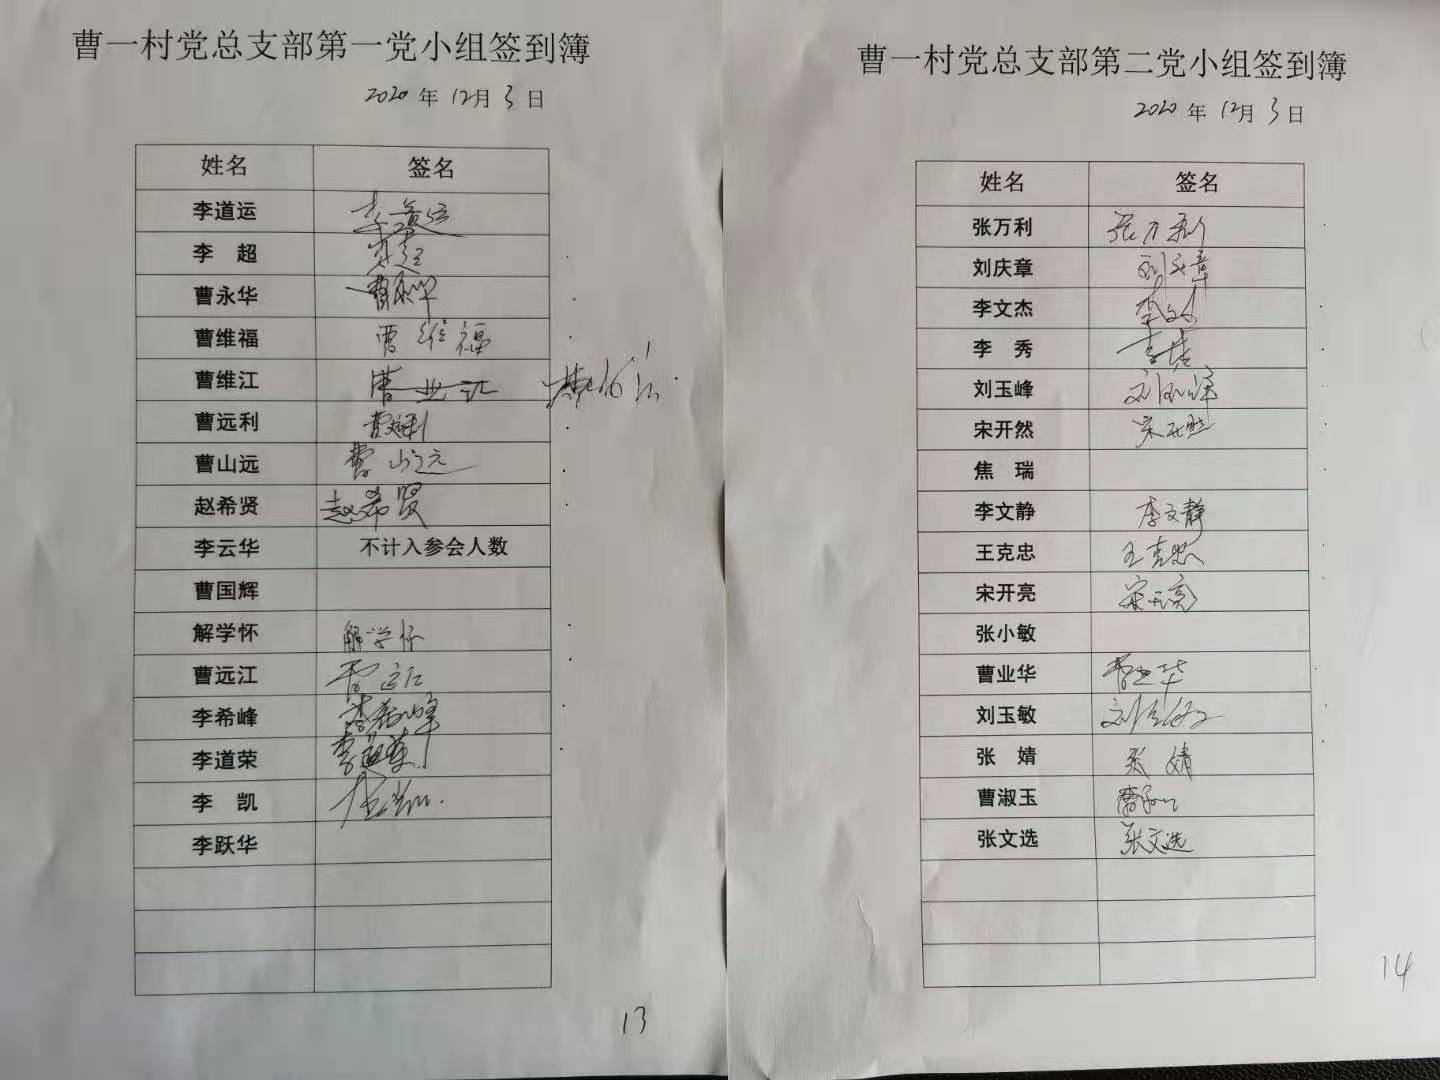 曹一村党总支部第一党小组签到簿
2020年12月3日
姓名 签名
李道运 李道运
李 超 李超
曹永华 曹永华
曹维福 曹维福
曹维江 曹业江 曹维江
曹远利 曹远利
曹山远 曹山远
赵希贤 赵希贤
李云华 不计入参会人数
曹国辉
解学怀 解学怀
曹远江 曹远江
李希峰 李希峰
李道荣 李道荣
李 凯
李跃华
13
曹一村党总支部第二党小组签到簿
2020年12月3日
姓名 签名
张万利 张万利
刘庆章 刘庆章
李文杰 李文杰
李 秀 李秀
刘玉峰 刘玉峰
宋开然 宋开然
焦 瑞
李文静 李文静
王克忠 王克忠
宋开亮 宋开亮
张小敏
曹业华 曹业华
刘玉敏 刘玉敏
张 婧 张婧
曹淑玉 曹淑玉
张文选 张文选
14